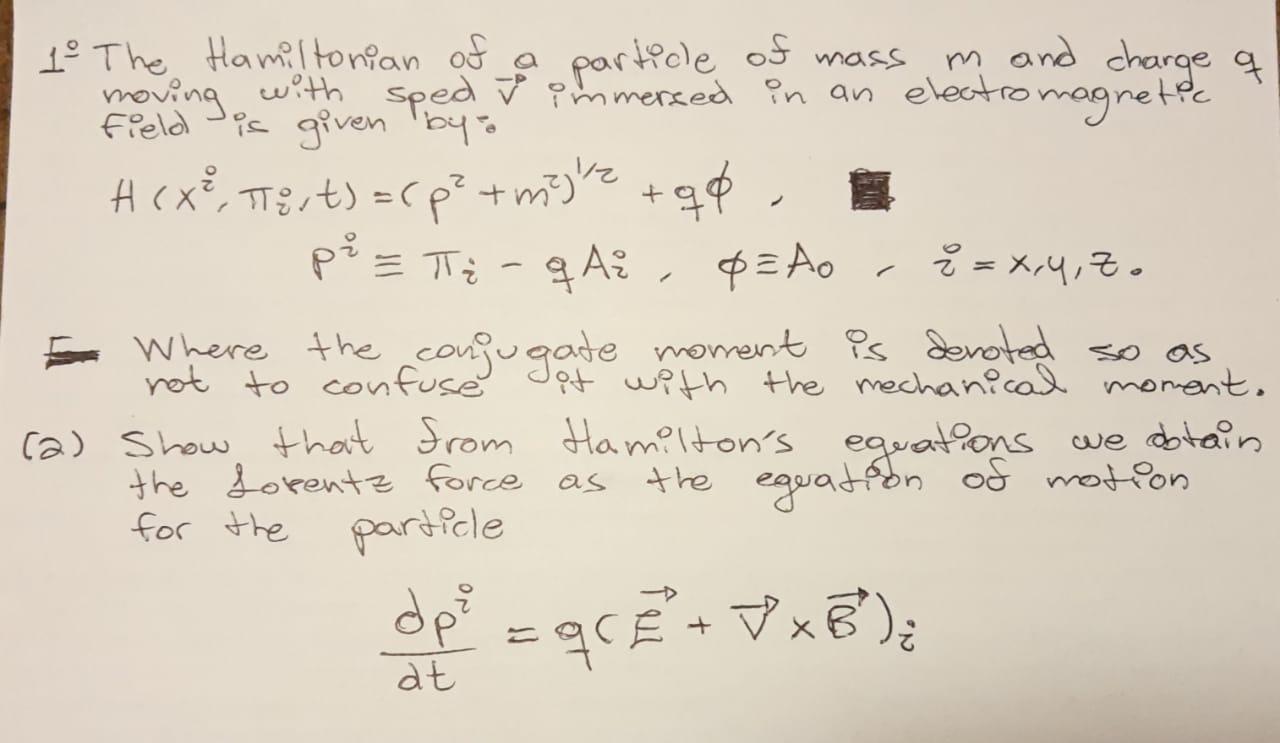 1º The Hamiltonian of a particle of mass m and charge q
moving with sped v⃗ immersed in an electromagnetic
field is given by:
H(xⁱ, πᵢ, t) = (p² + m²)^1/2 + qϕ ,
pⁱ ≡ πᵢ - qAᵢ , ϕ ≡ A₀ , i = x, y, z.
Where the conjugate moment is denoted so as
not to confuse it with the mechanical moment.
(a) Show that from Hamilton's equations we obtain
the Lorentz force as the equation of motion
for the particle
dpⁱ/dt = q(E⃗ + V⃗ × B⃗)ᵢ